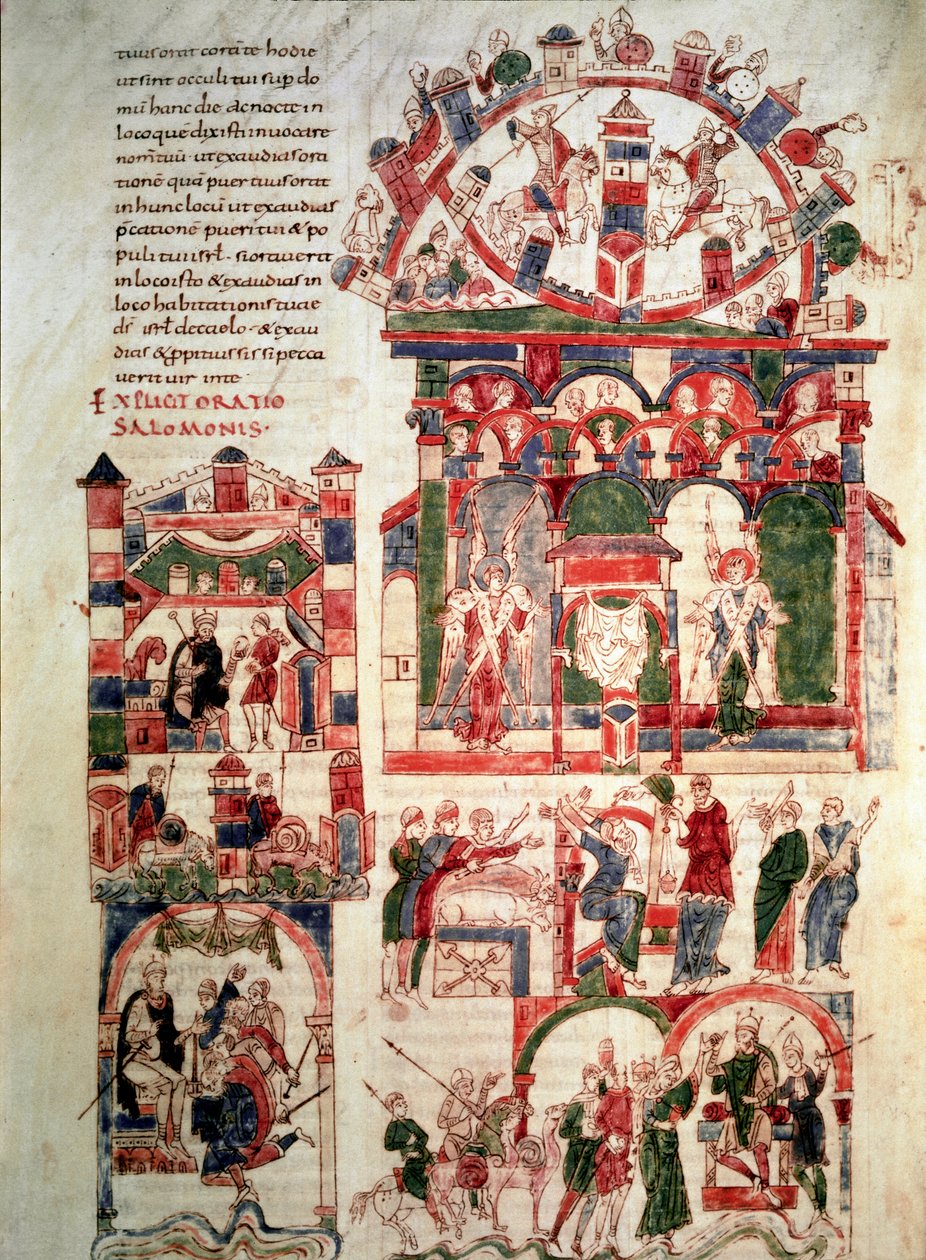 tuus orat corā te hodie
ut sint occuli tui sup do
mū hanc die ac nocte in
loco quē dixisti invocare
nom̄ tuū · ut exaudias ora
tionē quā puer tuus orat
in hunc locū ut exaudias
p̄cationē pueri tui & po
puli tui isrł · si oraverit
in loco isto & exaudias in
loco habitationis tuae
ds̄ isrł de caelo · & exau
dias & ppitius sis si pecca
verit vir in te ·
EXPLICIT ORATIO
SALOMONIS ·